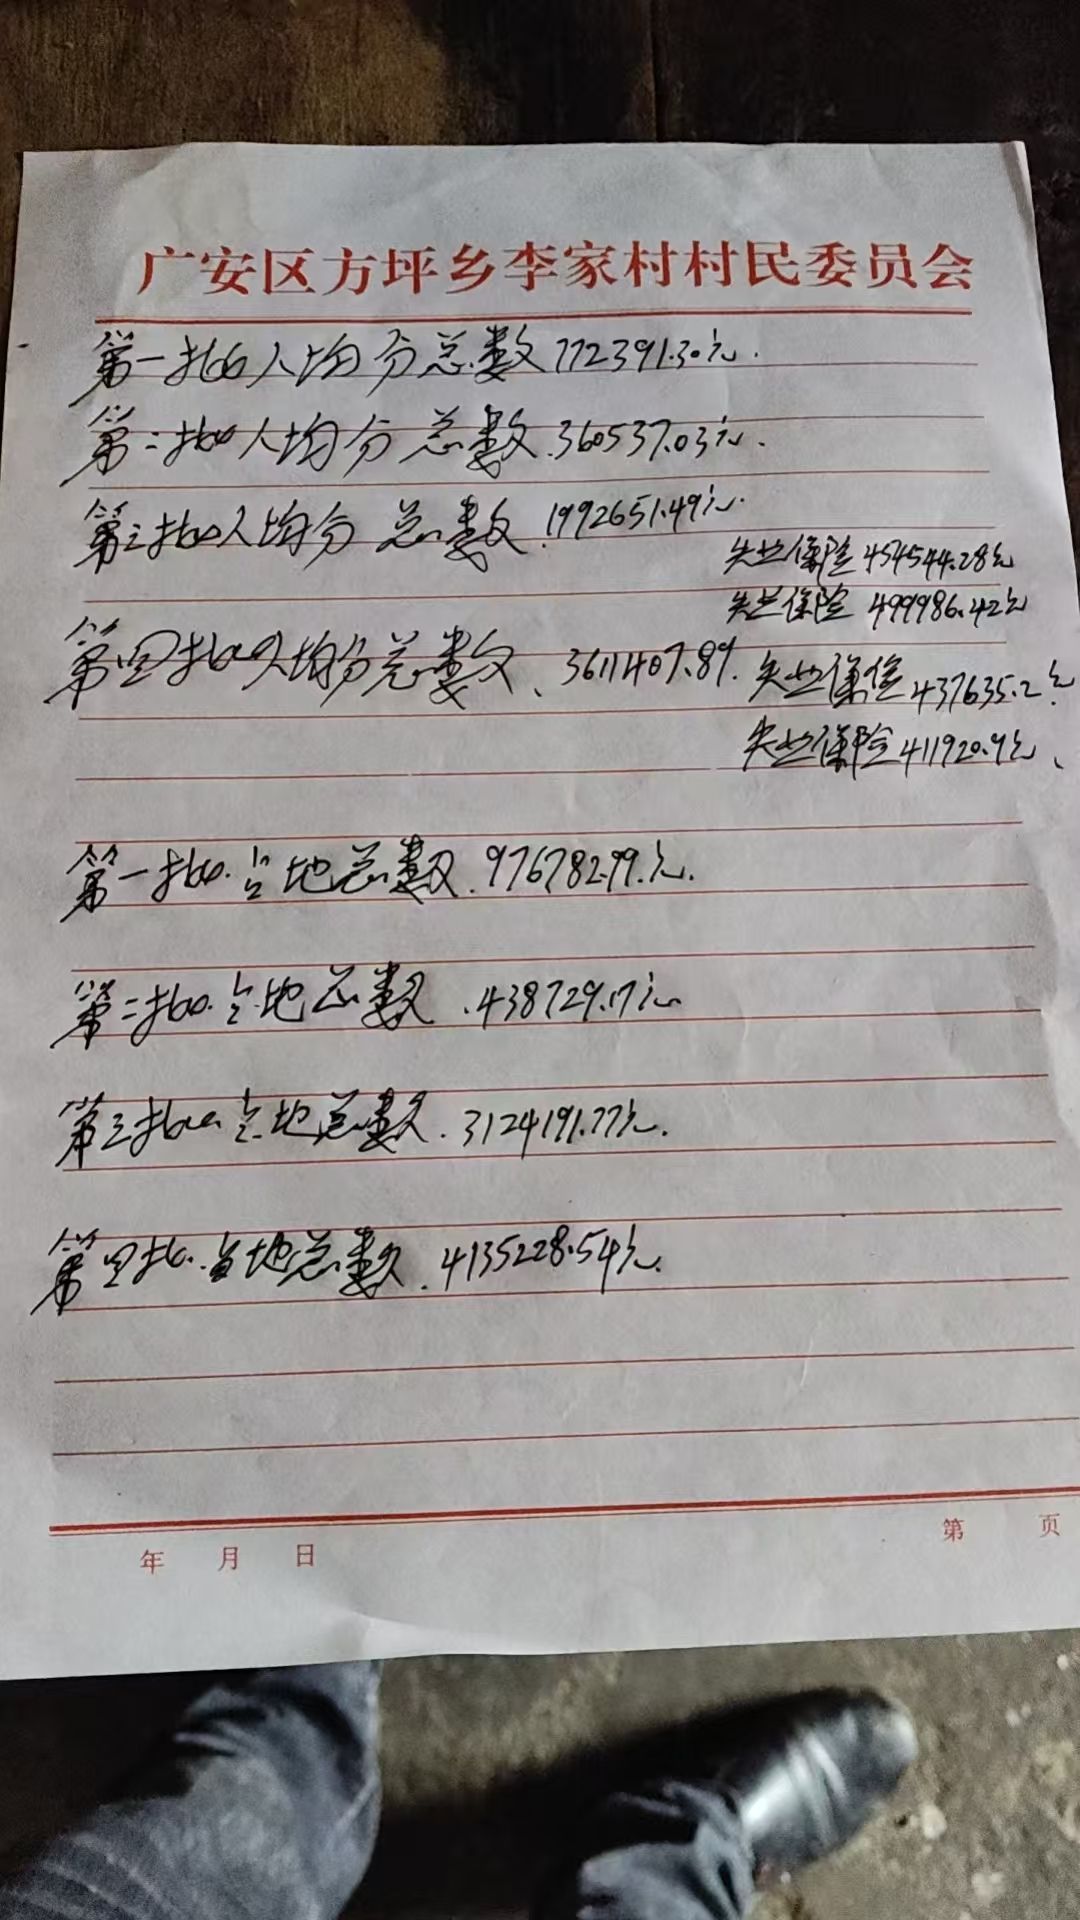 广安区方坪乡李家村村民委员会
第一批人均分总数772391.30元.
第二批人均分总数.360537.03元.
第三批人均分总数.1992651.49元.
失业保险454544.28元
失业保险499986.42元
第四批人均分总数、3611407.89.失业保险437635.2元.
失业保险411920.9元、
第一批.占地总数.976782.99.元.
第二批.占地总数.438729.17元.
第三批.占地总数.3124191.77元.
第四批.占地总数.4135228.54元.
年 月 日
第 页